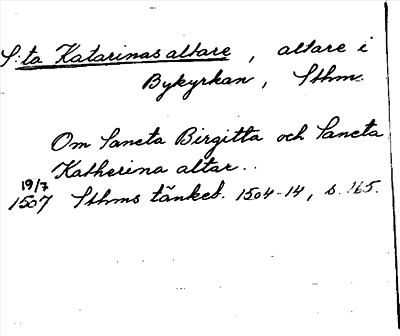 S:ta Katarinas altare, altare i
Bykyrkan, Sthm.
Om Sancta Birgitta och Sancta
Katherina altar..
19/7
1507 Sthms tänkeb. 1504-14, s. 165.